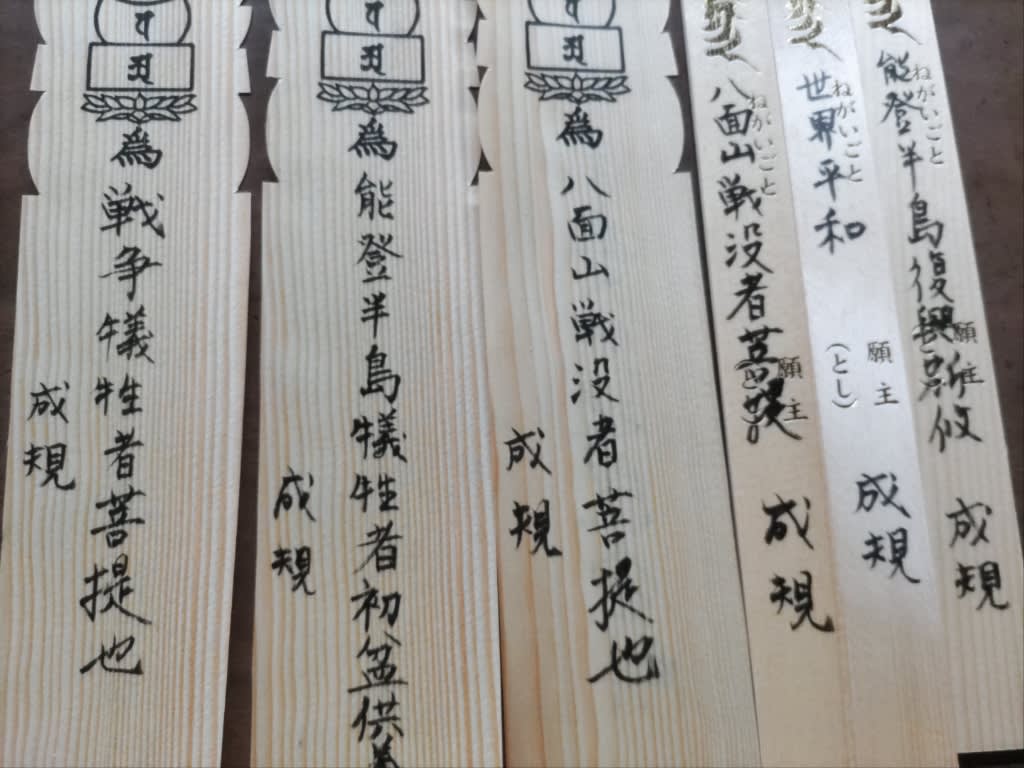 能登半島復興祈攸
ねがいごと
願主
成規
世界平和
ねがいごと
願主
(とし)
成規
八面山戦没者菩提
ねがいごと
願主
成規
為八面山戦没者菩提也
成規
為能登半島犠牲者初盆供養
成規
為戦争犠牲者菩提也
成規